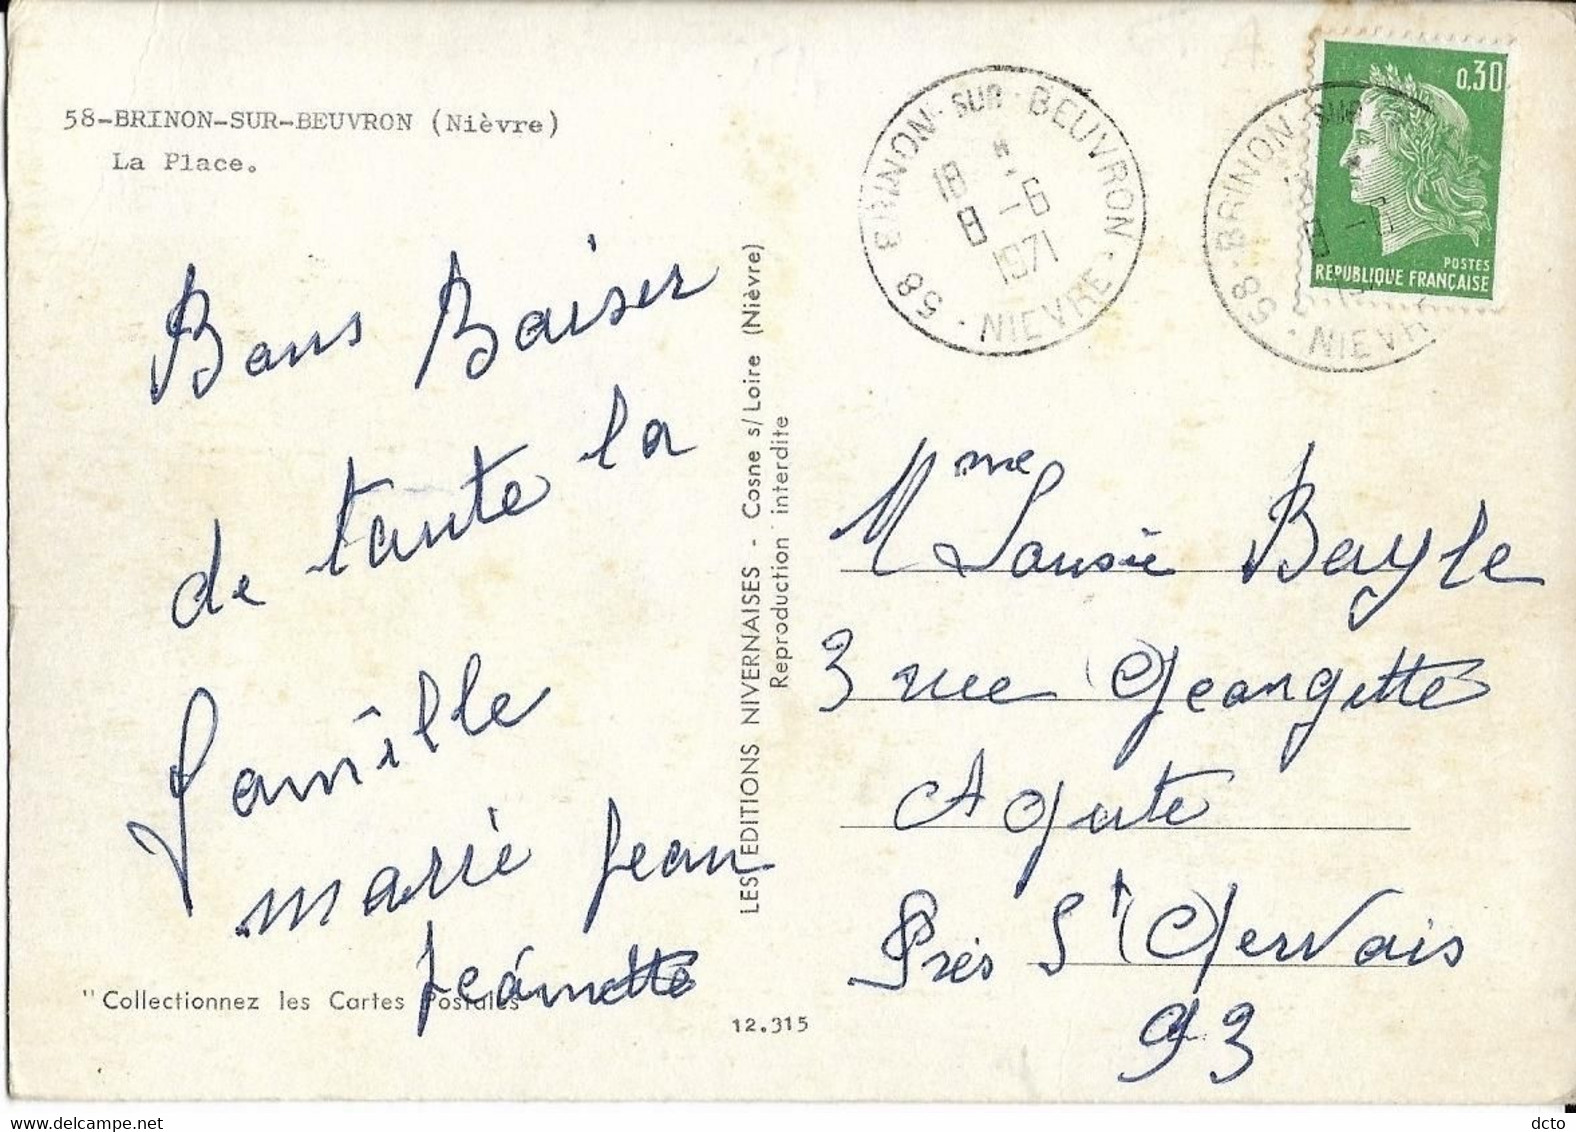 58-BRINON-SUR-BEUVRON (Nièvre)
La Place.
Bons Baiser
de tante la
famille
marie Jean
Jeannette
"Collectionnez les Cartes Postales
LES EDITIONS NIVERNAISES - Cosne s/Loire (Nièvre)
Reproduction interdite
12.315
58 BRINON-SUR-BEUVRON
18 H
8 -6
1971
NIEVRE
58-BRINON-SUR
8 -6
NIEVRE
0,30
POSTES
REPUBLIQUE FRANÇAISE
Mme Lousie Bayle
3 rue Georgette
Agute
Près St Gervais
93
dcto